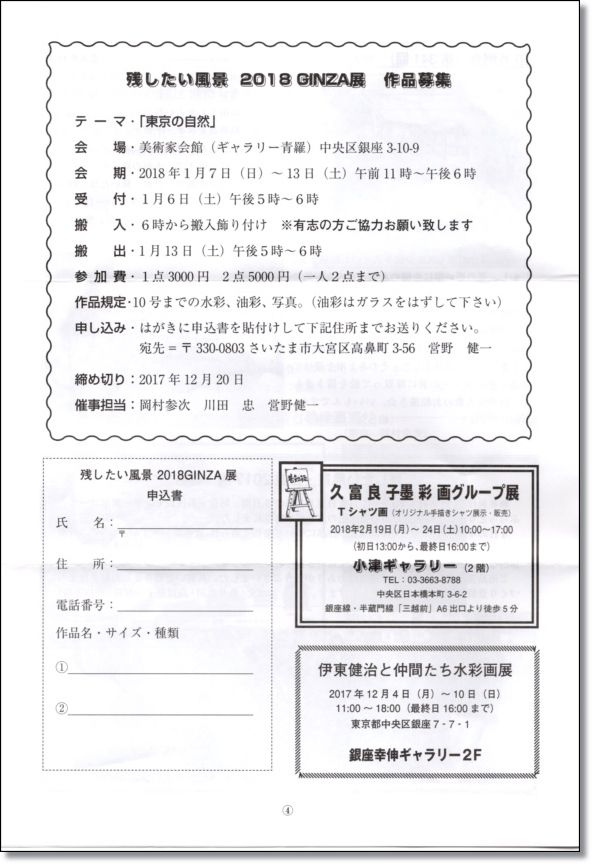 残したい風景 2018 GINZA展 作品募集
テーマ・「東京の自然」
会場・美術家会館（ギャラリー青羅）中央区銀座 3-10-9
会期・2018 年 1 月 7 日（日）～ 13 日（土）午前 11 時～午後 6 時
受付・1 月 6 日（土）午後 5 時～ 6 時
搬入・6 時から搬入飾り付け ※有志の方ご協力お願い致します
搬出・1 月 13 日（土）午後 5 時～ 6 時
参加費・1 点 3000 円 2 点 5000 円（一人 2 点まで）
作品規定・10 号までの水彩、油彩、写真。（油彩はガラスをはずして下さい）
申し込み・はがきに申込書を貼付けして下記住所までお送りください。
宛先＝〒 330-0803 さいたま市大宮区高鼻町 3-56 営野 健一
締め切り：2017 年 12 月 20 日
催事担当：岡村参次 川田 忠 営野健一
残したい風景 2018GINZA 展
申込書
氏名：
〒
住所：
電話番号：
作品名・サイズ・種類
①
②
久富良子墨彩画グループ展
Tシャツ画（オリジナル手描きシャツ展示・販売）
2018年2月19日（月）～ 24日（土）10:00～17:00
（初日13:00から、最終日16:00まで）
小津ギャラリー（2 階）
TEL：03-3663-8788
中央区日本橋本町 3-6-2
銀座線・半蔵門線「三越前」A6 出口より徒歩 5 分
伊東健治と仲間たち水彩画展
2017 年 12 月 4 日（月）～ 10 日（日）
11:00 ～ 18:00（最終日 16:00 まで）
東京都中央区銀座 7 - 7 - 1
銀座幸伸ギャラリー2F
④